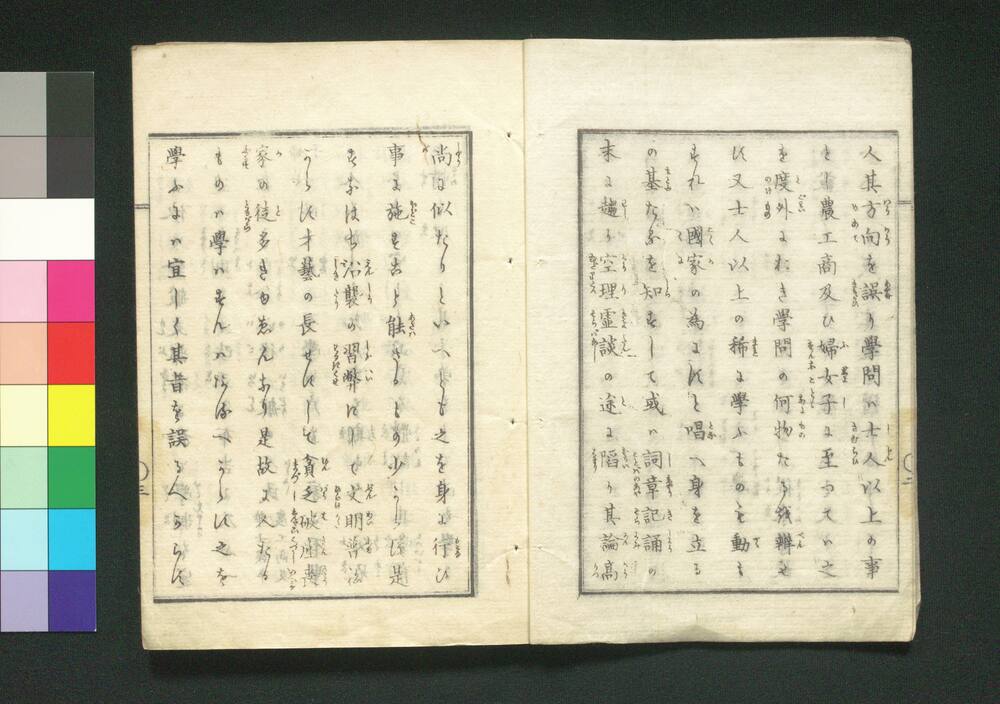 人其方向を誤り學問ハ士人以上の事
とし農工商及ひ婦女子に至つてハ之
を度外におき学問の何物たるを辨せ
す又士人以上の稀に學ふものも動も
すれハ國家の為にすと唱へ身を立る
の基たるを知すして或ハ詞章記誦の
末に趨り空理虚談の途に陥り其論高
尚に似たりといへとも之を身に行ひ
事に施すこと能さるもの少からす是
すなはち沿襲の習弊にして文明普ね
からす才藝の長せすして貧乏破産喪
家の徒多きゆゑんなり是故に人たる
ものハ學ハすんハあるへからす之を
學ふにハ宜しく其旨を誤るへからす